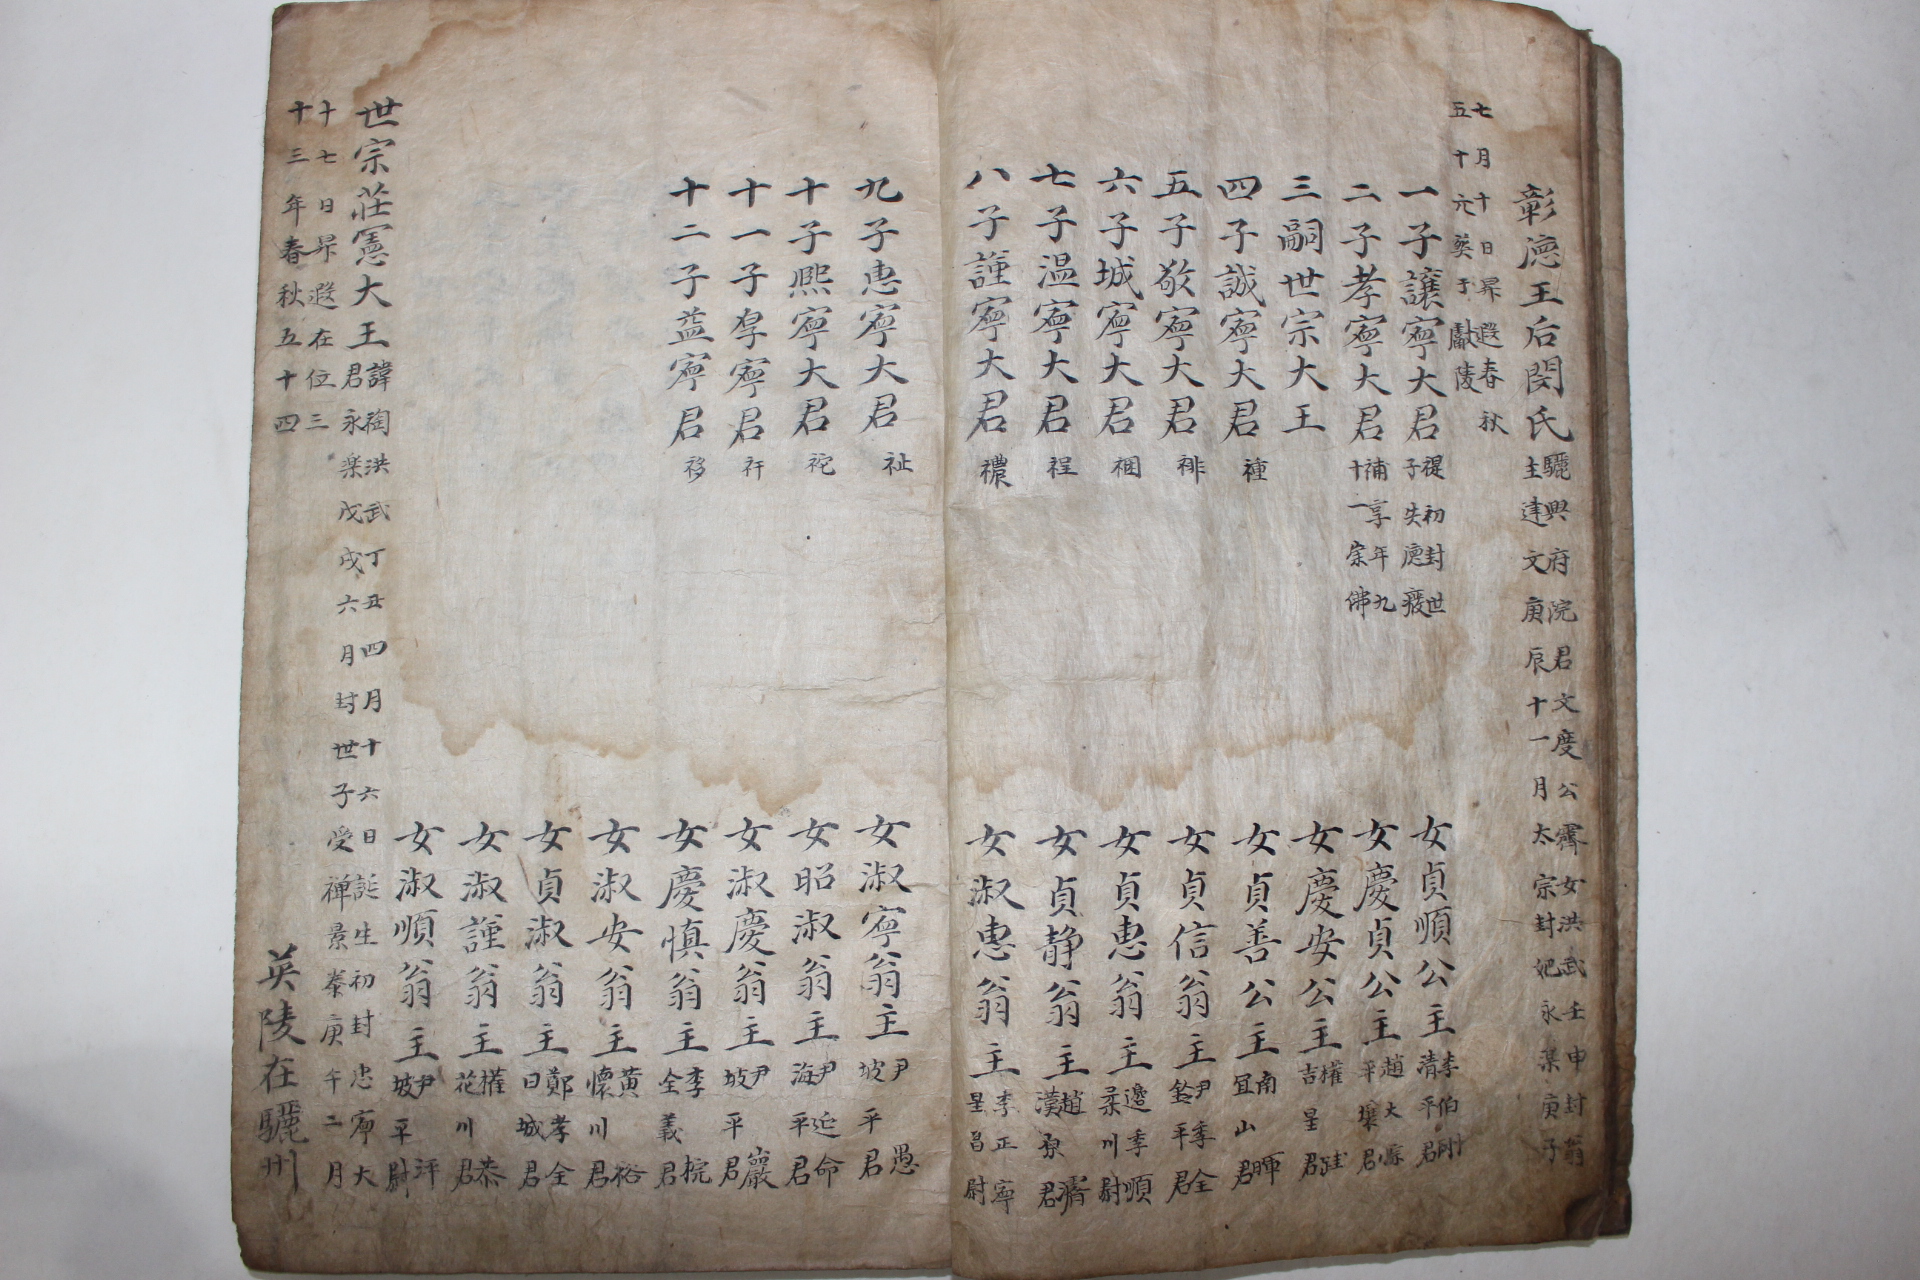 彰德王后閔氏
驪興府院君文度公霽女洪武壬申封翁
主建文庚辰十一月太宗封妃永楽庚子
七月十日昇遐春秋
五十六葬于獻陵
一子讓寧大君
禔初封世
子失德廢
二子孝寧大君
補享年九
十一宗佛
三嗣世宗大王
四子誠寧大君 種
五子敬寧大君 裶
六子城寧大君 裍
七子温寧大君 裎
八子謹寧大君 襛
女貞順公主
李伯剛
清平君
女慶貞公主
趙大
平壤君
女慶安公主
權跬
吉昌君
女貞善公主
南暉
宜山君
女貞信翁主
尹季全
鈴平君
女貞惠翁主
邊季順
柔川尉
女貞静翁主
趙濬
漢原君
女淑惠翁主
李正寧
星昌尉
九子惠寧大君 祉
十子熙寧大君 袉
十一子厚寧君 衦
十二子益寧君 袳
女淑寧翁主
尹愚
坡平君
女昭淑翁主
尹延命
海平君
女淑慶翁主
尹巖
坡平君
女慶慎翁主
李梡
全義君
女淑安翁主
黃裕
懷川君
女貞淑翁主
鄭孝全
日城君
女淑謹翁主
權恭
花川君
女淑順翁主
尹泙
坡平尉
世宗莊憲大王
諱祹洪武丁丑四月十六日誕生初封忠寧大
君永楽戊戌六月封世子受禅景泰庚午二月
十七日昇遐在位三
十三年春秋五十四
英陵在驪州